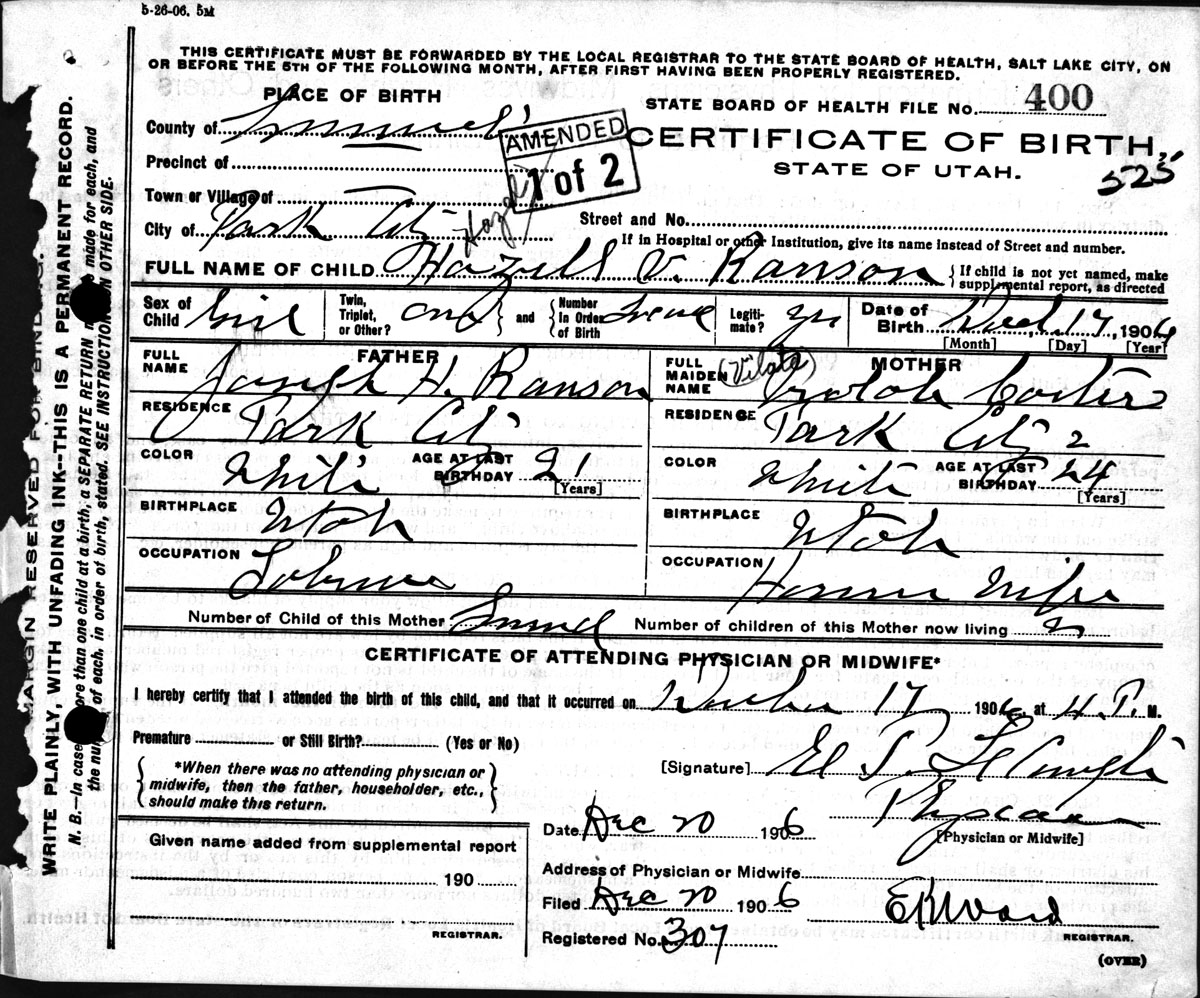 5-26-06. 5M
THIS CERTIFICATE MUST BE FORWARDED BY THE LOCAL REGISTRAR TO THE STATE BOARD OF HEALTH, SALT LAKE CITY, ON
OR BEFORE THE 5TH OF THE FOLLOWING MONTH, AFTER FIRST HAVING BEEN PROPERLY REGISTERED.
PLACE OF BIRTH
STATE BOARD OF HEALTH FILE No. 400
County of Summit
AMENDED
1 of 2
CERTIFICATE OF BIRTH,
STATE OF UTAH.
525
Precinct of
Town or Village of
City of Park City
Street and No.
If in Hospital or other Institution, give its name instead of Street and number.
Hazel
FULL NAME OF CHILD Hazell V. Ranson
If child is not yet named, make supplemental report, as directed
Sex of Child Girl
Twin, Triplet, or Other? one and Number In Order of Birth
Legitimate? yes
Date of Birth Dec 17, 1906
[Month] [Day] [Year]
FATHER
FULL NAME Joseph H. Ranson
RESIDENCE Park City
COLOR White AGE AT LAST BIRTHDAY 21
[Years]
BIRTHPLACE Utah
OCCUPATION
MOTHER
(Vilate)
FULL MAIDEN NAME
RESIDENCE Park City
COLOR White AGE AT LAST BIRTHDAY 24
[Years]
BIRTHPLACE Utah
OCCUPATION House Wife
Number of Child of this Mother Second Number of children of this Mother now living 2
CERTIFICATE OF ATTENDING PHYSICIAN OR MIDWIFE*
I hereby certify that I attended the birth of this child, and that it occurred on December 17 1906 at 4 P. M.
Premature or Still Birth? (Yes or No)
*When there was no attending physician or
midwife, then the father, householder, etc.,
should make this return.
[Signature]
Physician
[Physician or Midwife]
Date Dec 20 1906
Address of Physician or Midwife
Filed Dec 20 1906
E R Ward
REGISTRAR.
Registered No. 307
(OVER)
Given name added from supplemental report
190
REGISTRAR.
MARGIN RESERVED FOR BINDING.
WRITE PLAINLY, WITH UNFADING INK--THIS IS A PERMANENT RECORD.
N. B.—In case ore than one child at a birth, a SEPARATE RETURN made for each, and
the nu of each, in order of birth, stated. SEE INSTRUCTION ON OTHER SIDE.